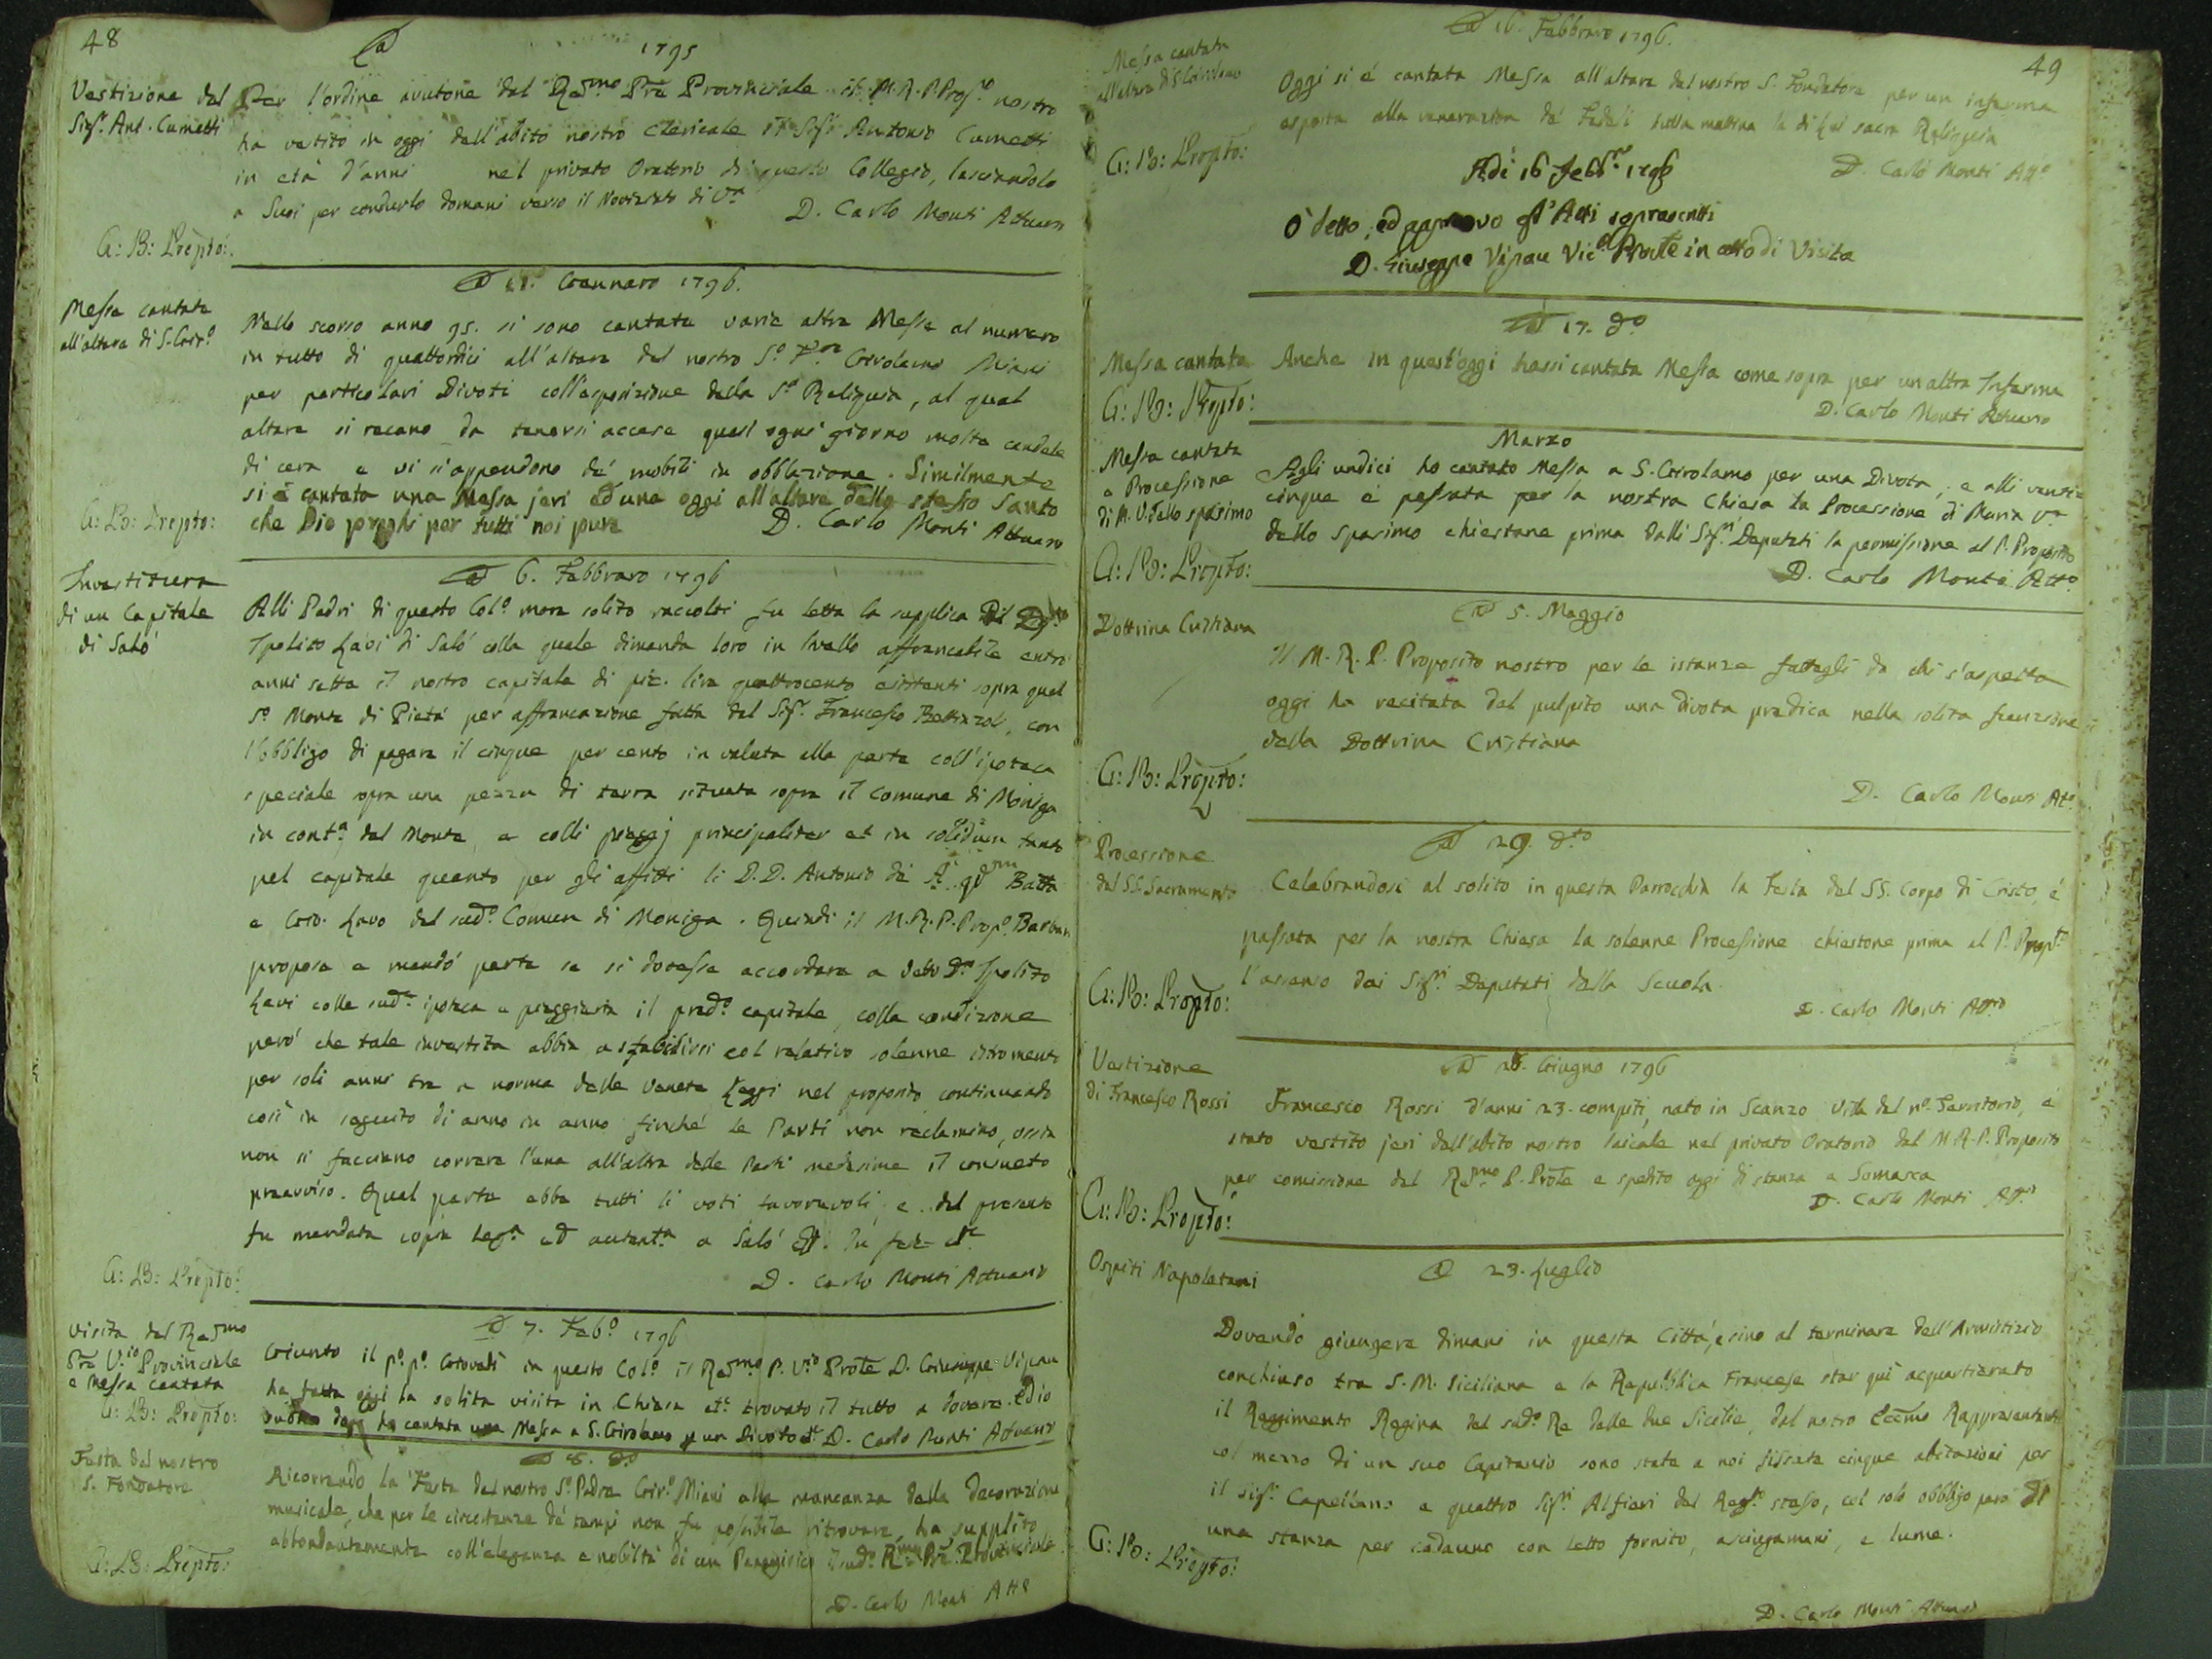 48
A 1795
Vestizione del
Sigr. Ant. Cometti
Per l'ordine avutone dal Resmo Pre Provinciale il M.R.P. Propto nostro
ha vestito in oggi dell'abito nostro clericale il Sigr Antonio Cometti
in età d'anni nel privato Oratorio di questo Collegio, lasciandolo
a Suoi per condurlo domani verso il Noviziato di Va
D. Carlo Monti Attuaro
G: B: Prepto:
A Gennaro 1796.
Messa cantata
all'altare di S. Giro
Nello scorso anno 95. si sono cantate varie altre Messe al numero
in tutto di quattordici all'altare del nostro So Pre Girolamo Miani
per particolari Divoti coll'esposizione della Sa Reliquia, al qual
altare si recano da tenersi accese quasi ogni giorno molte candele
di cera e vi si appendono de' mobili in obblazione. Similmente
si è cantata una Messa jeri ed una oggi all'altare dello stesso Santo
che Dio preghi per tutti noi pure D. Carlo Monti Attuaro
G: B: Prepto:
A 6. Febbraro 1796
Investitura
di un Capitale
di Salò
Alli Padri di questo Colo more solito raccolti fu letta la supplica Del Do
Ipolito Lavi di Salò colla quale dimanda loro in livello affrancabile entro
anni sette il nostro capitale di pic. lire quattrocento esistenti sopra quel
So Monte di Pietà per affrancazione fatta dal Sigr. Francesco Bettinzoli, con
l'obbligo di pagare il cinque per cento in valuta alla parte coll'ipoteca
speciale sopra una pezza di terra situata sopra il Comune di Moniga
in conta del Monte, e colli pieggj principaliter et in solidum tanto
pel capitale quanto per gli affitti li D.D. Antonio qdm Batta
e Gio. Lavo del sudo Comun di Moniga. Quindi il M.R.P. Propo Barbari
propose e mandò parte se si dovesse accordare a detto Do Ipolito
Lavi colle sude ipoteca e pieggiaria il predo capitale, colla condizione
però che tale investita abbia a stabilirsi col relativo solenne istromento
per soli anni tre a norma delle Venete Leggi nel proposito continuando
così in seguito di anno in anno finchè le Parti non reclamino, ossia
non si facciano correre l'una all'altra delle Parti medesime il consueto
preavviso. Qual parte ebbe tutti li voti favorevoli, e del presente
fu mandata copia lega ed autenta a Salò In fede
D. Carlo Monti Attuaro
G: B: Prepto:
A 7. Febo 1796
Visita del Resmo
Pre V.io Provinciale
e Messa cantata
Giunto il po. po. Giovedì in questo Colo il Resmo P. Vio Prole D. Giuseppe Vipau
ha fatta oggi la solita visita in Chiesa etc. trovato il tutto a dovere. Edio
ho cantata una Messa a S. Girolamo p un Divoto D. Carlo Monti Attuaro
G: B: Propto:
A 8. do
Festa del nostro
S. Fondatore
Ricorrendo la Festa del nostro So Padre Giro Miani alla mancanza della decorazione
musicale, che per le circostanze de' tempi non fu possibile ritrovare, ha supplito
abbondantemente coll'eleganza e nobiltà di un Panegirico il sudo Rmo Pre Provinciale
D. Carlo Monti Atto
G: B: Prepto:
49
A 16. Febbraro 1796.
Messa cantata
all'altare di S. Girolamo
Oggi si è cantata Messa all'altare del nostro S. Fondatore per un inferma
esposta alla venerazion de' Fedeli tutta mattina la di Lui sacra Reliquia
D. Carlo Monti Atto
G: B: Propto:
Adì 16 Febbro 1796
Ò letto, ed approvo gl'Atti soprascritti
D. Giuseppe Vipau Vice Prole in atto di Visita
A 17. do
Messa cantata
Anche in quest'oggi hassi cantata Messa come sopra per un altra Inferma
D. Carlo Monti Attuaro
G: B: Propto:
Marzo
Messa cantata
e Processione
di M. V. dello spasimo
Agli undici ho cantato Messa a S. Girolamo per una Divota; e alli venti
cinque è passata per la nostra Chiesa la Processione di Maria Va
dello spasimo chiestane prima dalli Sigri Deputati la permissione al P. Proposito
D. Carlo Monti Atto
G: B: Propto:
A 5. Maggio
Dottrina Cristiana
Il M. R. P. Proposito nostro per le istanze fattegli da chi s'aspetta
oggi ha recitata dal pulpito una divota predica nella solita funzione
della Dottrina Cristiana
D. Carlo Monti Ato
G: B: Propto:
A 29. do
Processione
del SS. Sacramento
Celebrandosi al solito in questa Parrocchia la Festa del SS. Corpo di Cristo, è
passata per la nostra Chiesa la solenne Processione chiestone prima al P. Propto
l'assenso dai Sigri Deputati della Scuola.
D. Carlo Monti Atto
G: B: Propto:
A Giugno 1796
Vestizione
di Francesco Rossi
Francesco Rossi d'anni 23. compiti, nato in Scanzo Villa del no Territorio, è
stato vestito jeri dell'abito nostro laicale nel privato Oratorio dal M.R.P. Proposito
per comissione del Resmo P. Prole e spedito oggi di stanza a Somasca
D. Carlo Monti Atto
G: B: Propto:
A 23. Luglio
Ospiti Napoletani
Dovendo giungere dimani in questa Città, e sino al terminare dell'Armistizio
conchiuso tra S. M. Siciliana e la Repubblica Francese star quì acquartierato
il Reggimento Regina del sudo Re delle due Sicilie, dal nostro Eccmo Rappresentante
col mezzo di un suo Capitanio sono state a noi fissate cinque abitazioni per
il Sigr. Capellano e quattro Sigri Alfieri del Regto stesso, col solo obbligo però di
una stanza per cadauno con letto fornito, asciugamani, e lume.
D. Carlo Monti Attuaro
G: B: Propto: